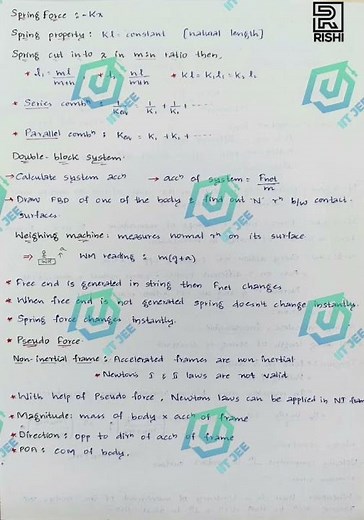 Spring Force : -Kx
RISHI
Spring property : Kl = constant [natural length]
Spring cut into 2 in m:n ratio then,
* l₁ = ml/m+n * l₂ = nl/m+n * Kl = K₁l₁ = K₂l₂
* Series combⁿ : 1/Keq = 1/K₁ + 1/K₂ + ----
* Parallel combⁿ : Keq = K₁ + K₂ + ----
Double-block system
→ Calculate system accⁿ → accⁿ of system = Fnet/m
→ Draw FBD of one of the body & find out 'N' rⁿ b/w contact surfaces
Weighing machine : measures normal rⁿ on its surface
⇒ WM reading : m(g+a)
* Free end is generated in string then Fnet changes
* When free end is not generated spring doesn't change instantly.
* Spring force changes instantly.
* Pseudo Force
Non-inertial frame : Accelerated frames are non inertial
* Newton's I & II laws are not valid
* With help of Pseudo force, Newtons laws can be applied in NI frame
* Magnitude : mass of body x accⁿ of frame
* Direction : opp to dirⁿ of accⁿ of frame
* POA : COM of body.
IIT JEE
IIT JEE
IIT JEE
IIT JEE
IIT JEE
IIT JEE
IIT JEE